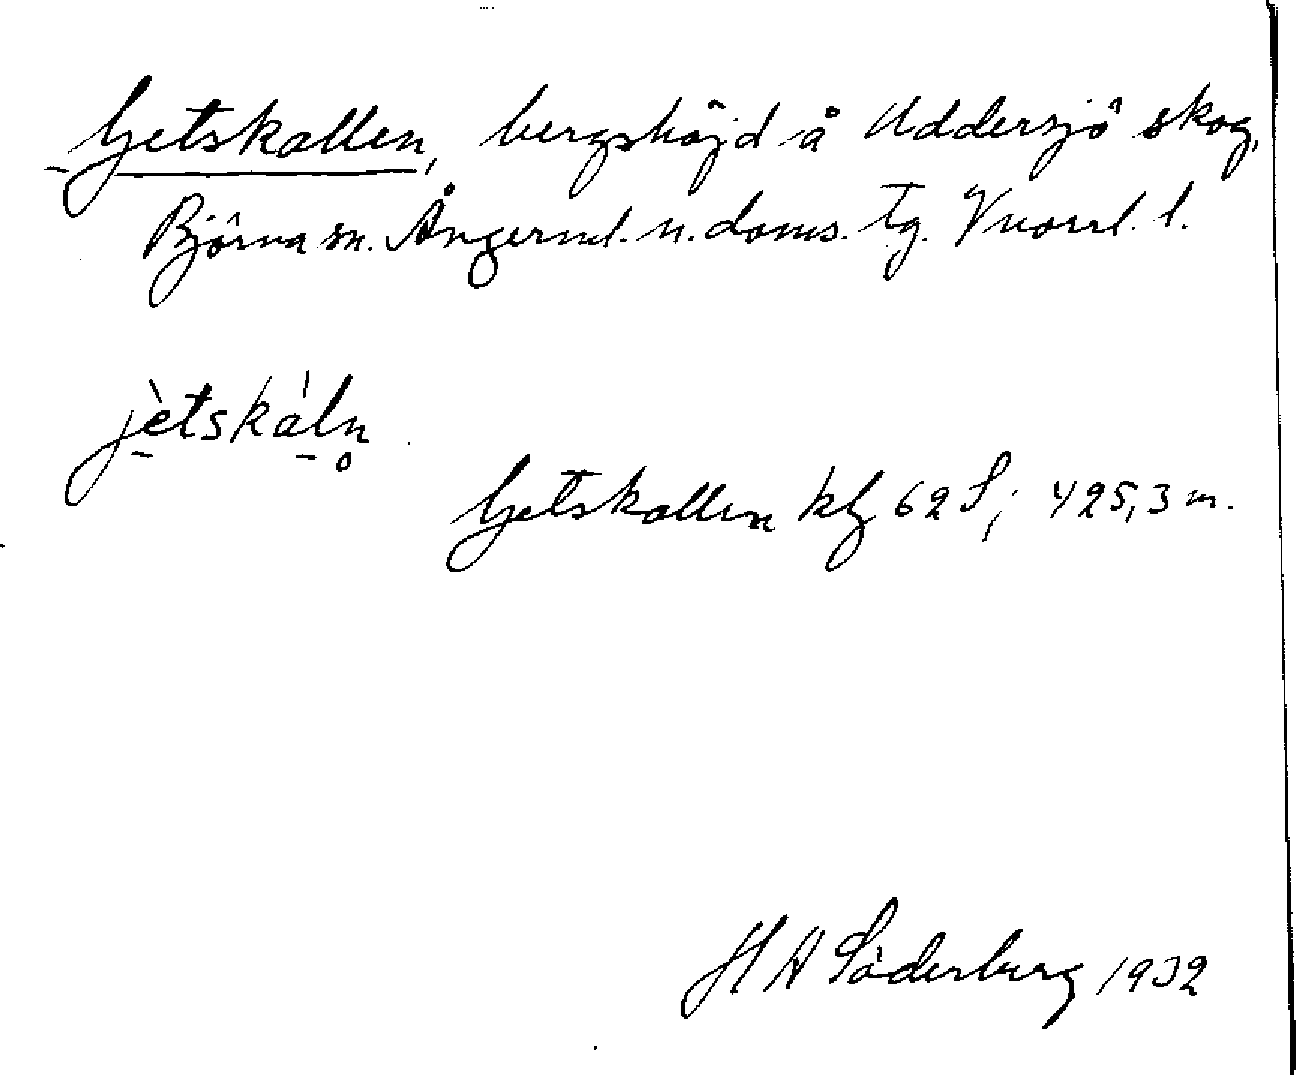 Getskallen, bergshöjd å Uddersjö skog,
Björna sn. Ångerml. n. doms. tg. Vnorrl. l.
jètskáln̥
Getskallen kbl 62 S; 425,3 m.
H A Söderberg 1932